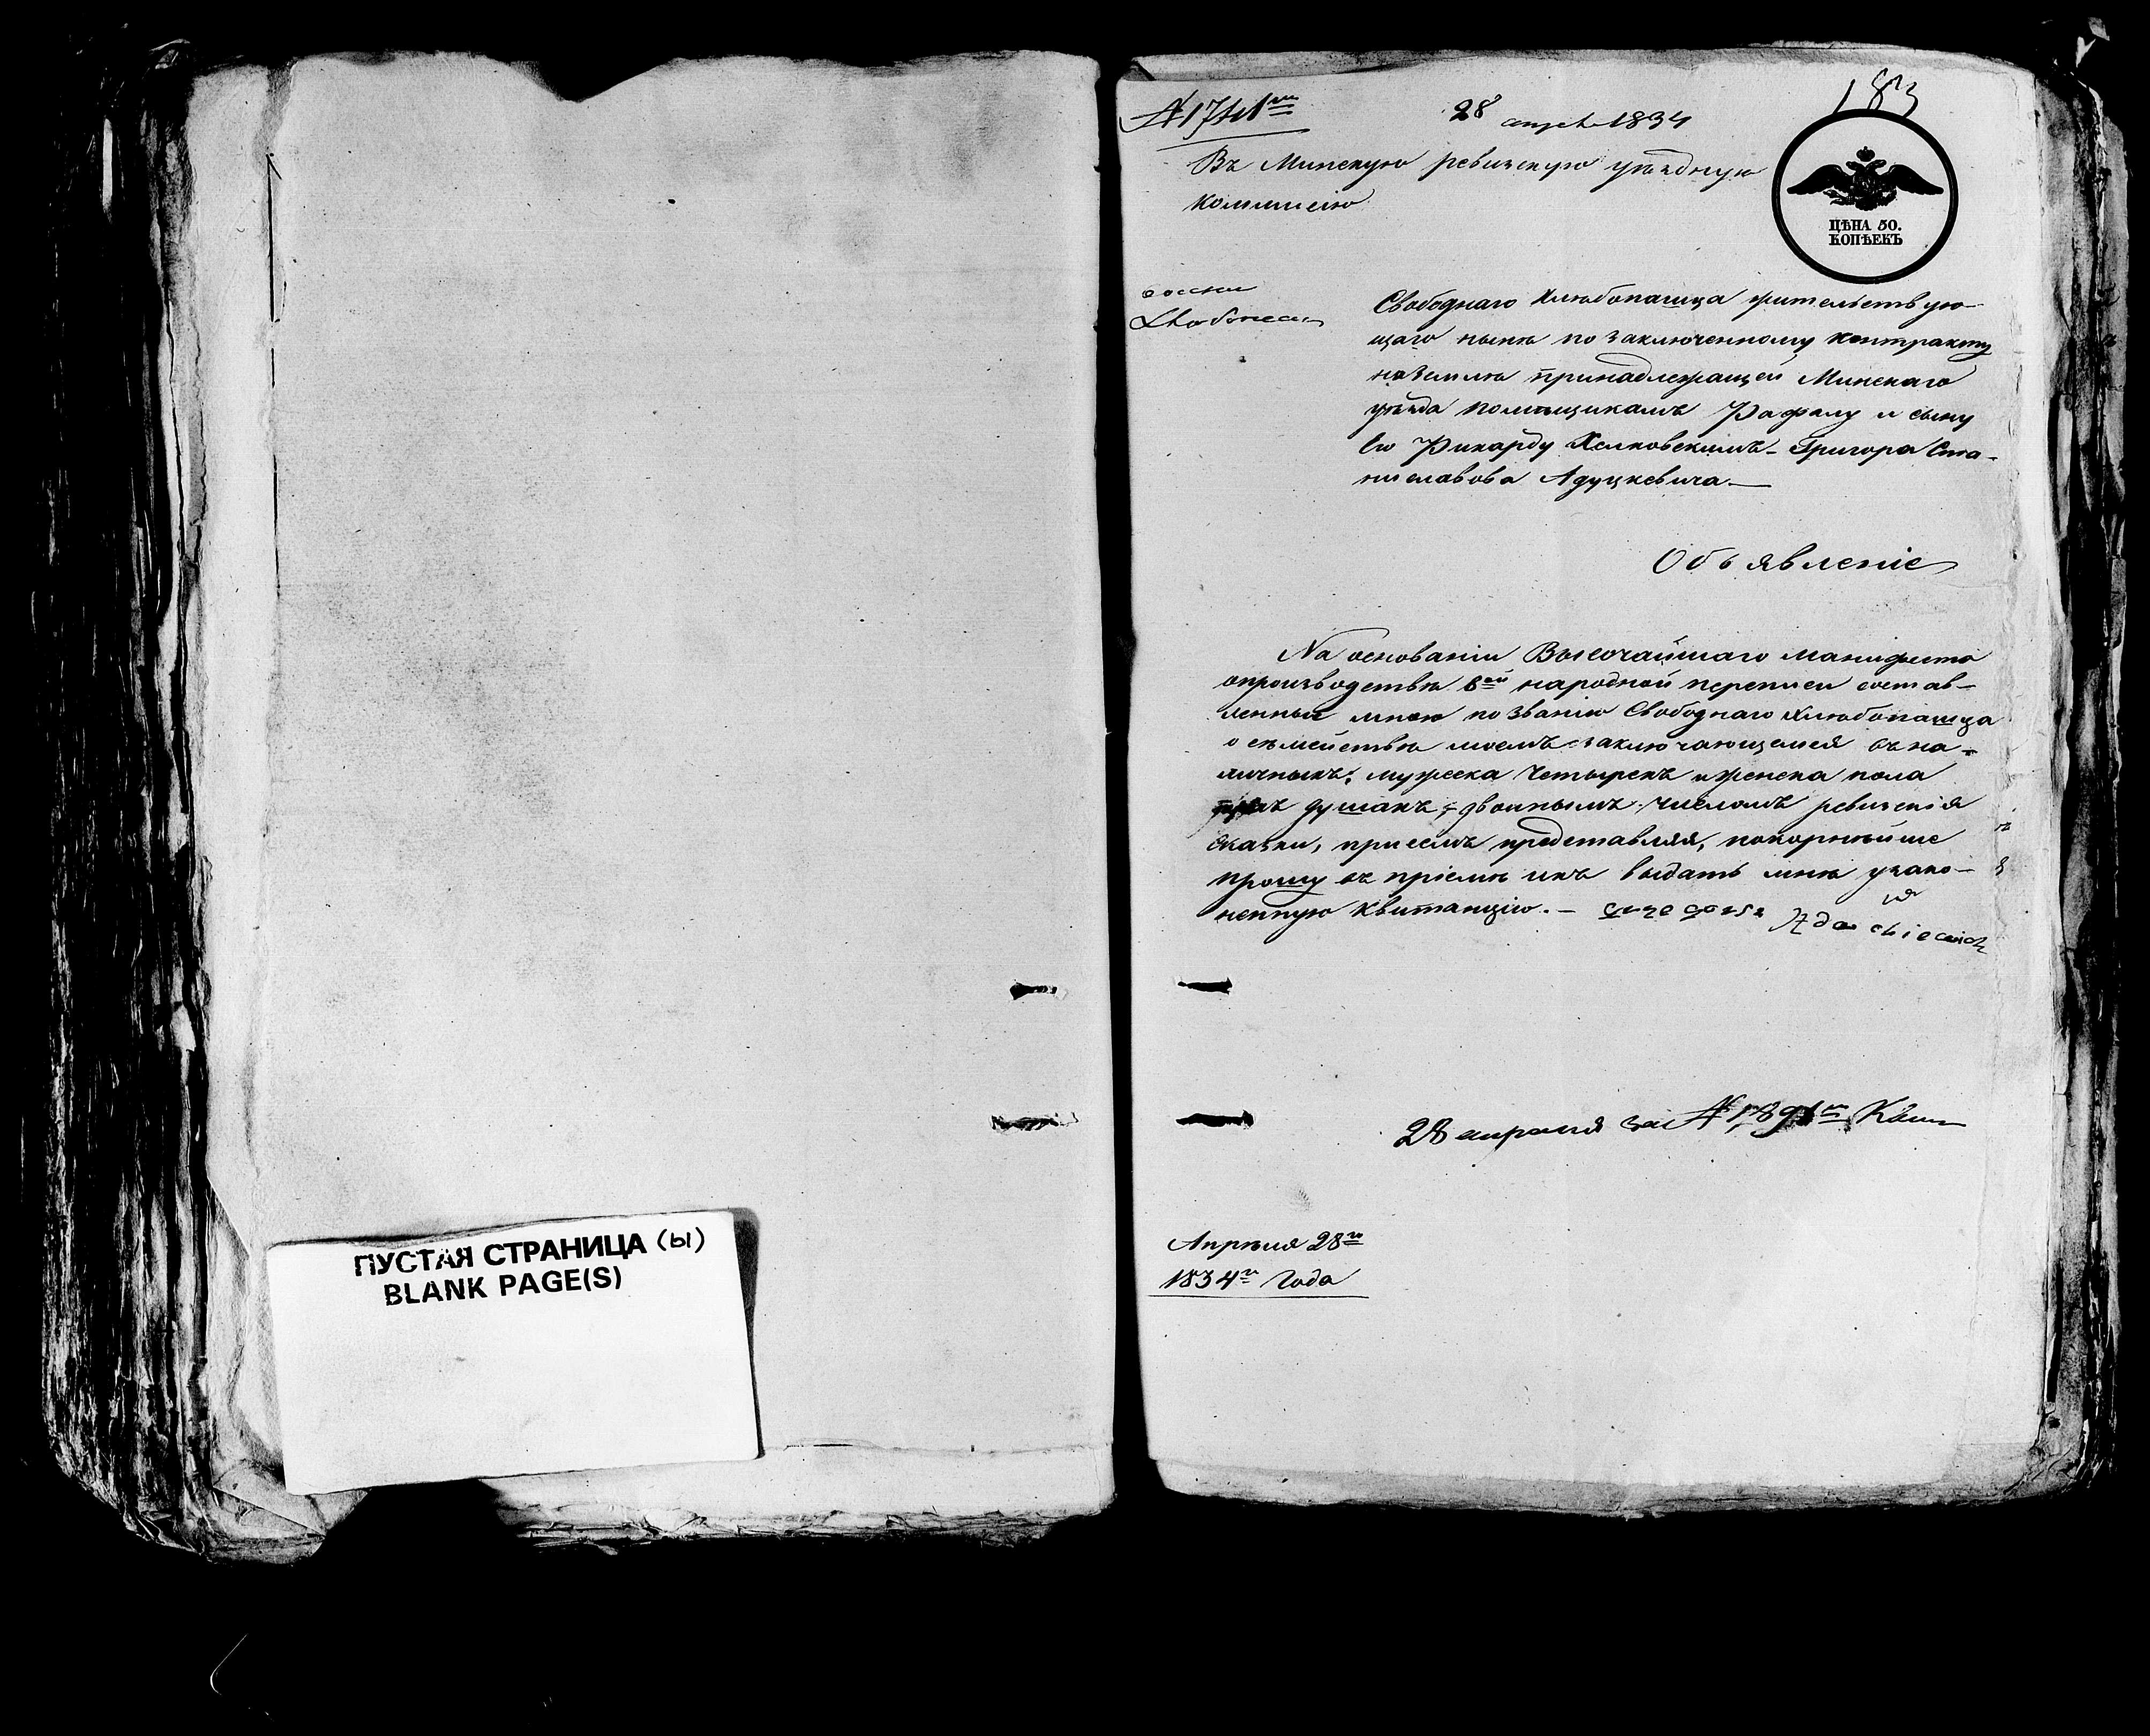 ПУСТАЯ СТРАНИЦА (ы)
BLANK PAGE(S)
183
28 апрел 1834
Въ Минскую ревизскую уѣздную
Коммисію
ЦѢНА 50.
КОПѢЕКЪ
Свободнаго Хлѣбопашца жительствую-
щаго нынѣ по заключенному контракту
на землѣ принадлежащей Минскаго
уѣзда помѣщикамъ Рафалу и сыну
Его Рикарду Хелховскимъ - Григора Ста-
ниславова Адуцкевича.—
Объявленіе
На основаніи Высочайшаго манифеста
о производствѣ 8ой народной переписи состав-
ленные мною по званію Свободнаго Хлѣбопашца
о сѣмействѣ моемъ заключающемся въ на-
личныхъ: мужеска четырехъ и женска пола
душахъ, двойнымъ числомъ ревизскія
сказки, при семъ представляя, покорнѣйше
прошу въ пріемѣ ихъ выдать мнѣ узако-
ненную квитанцію.—
28 апреля за № 1891м Квит
Апрѣля 28го
1834го Года